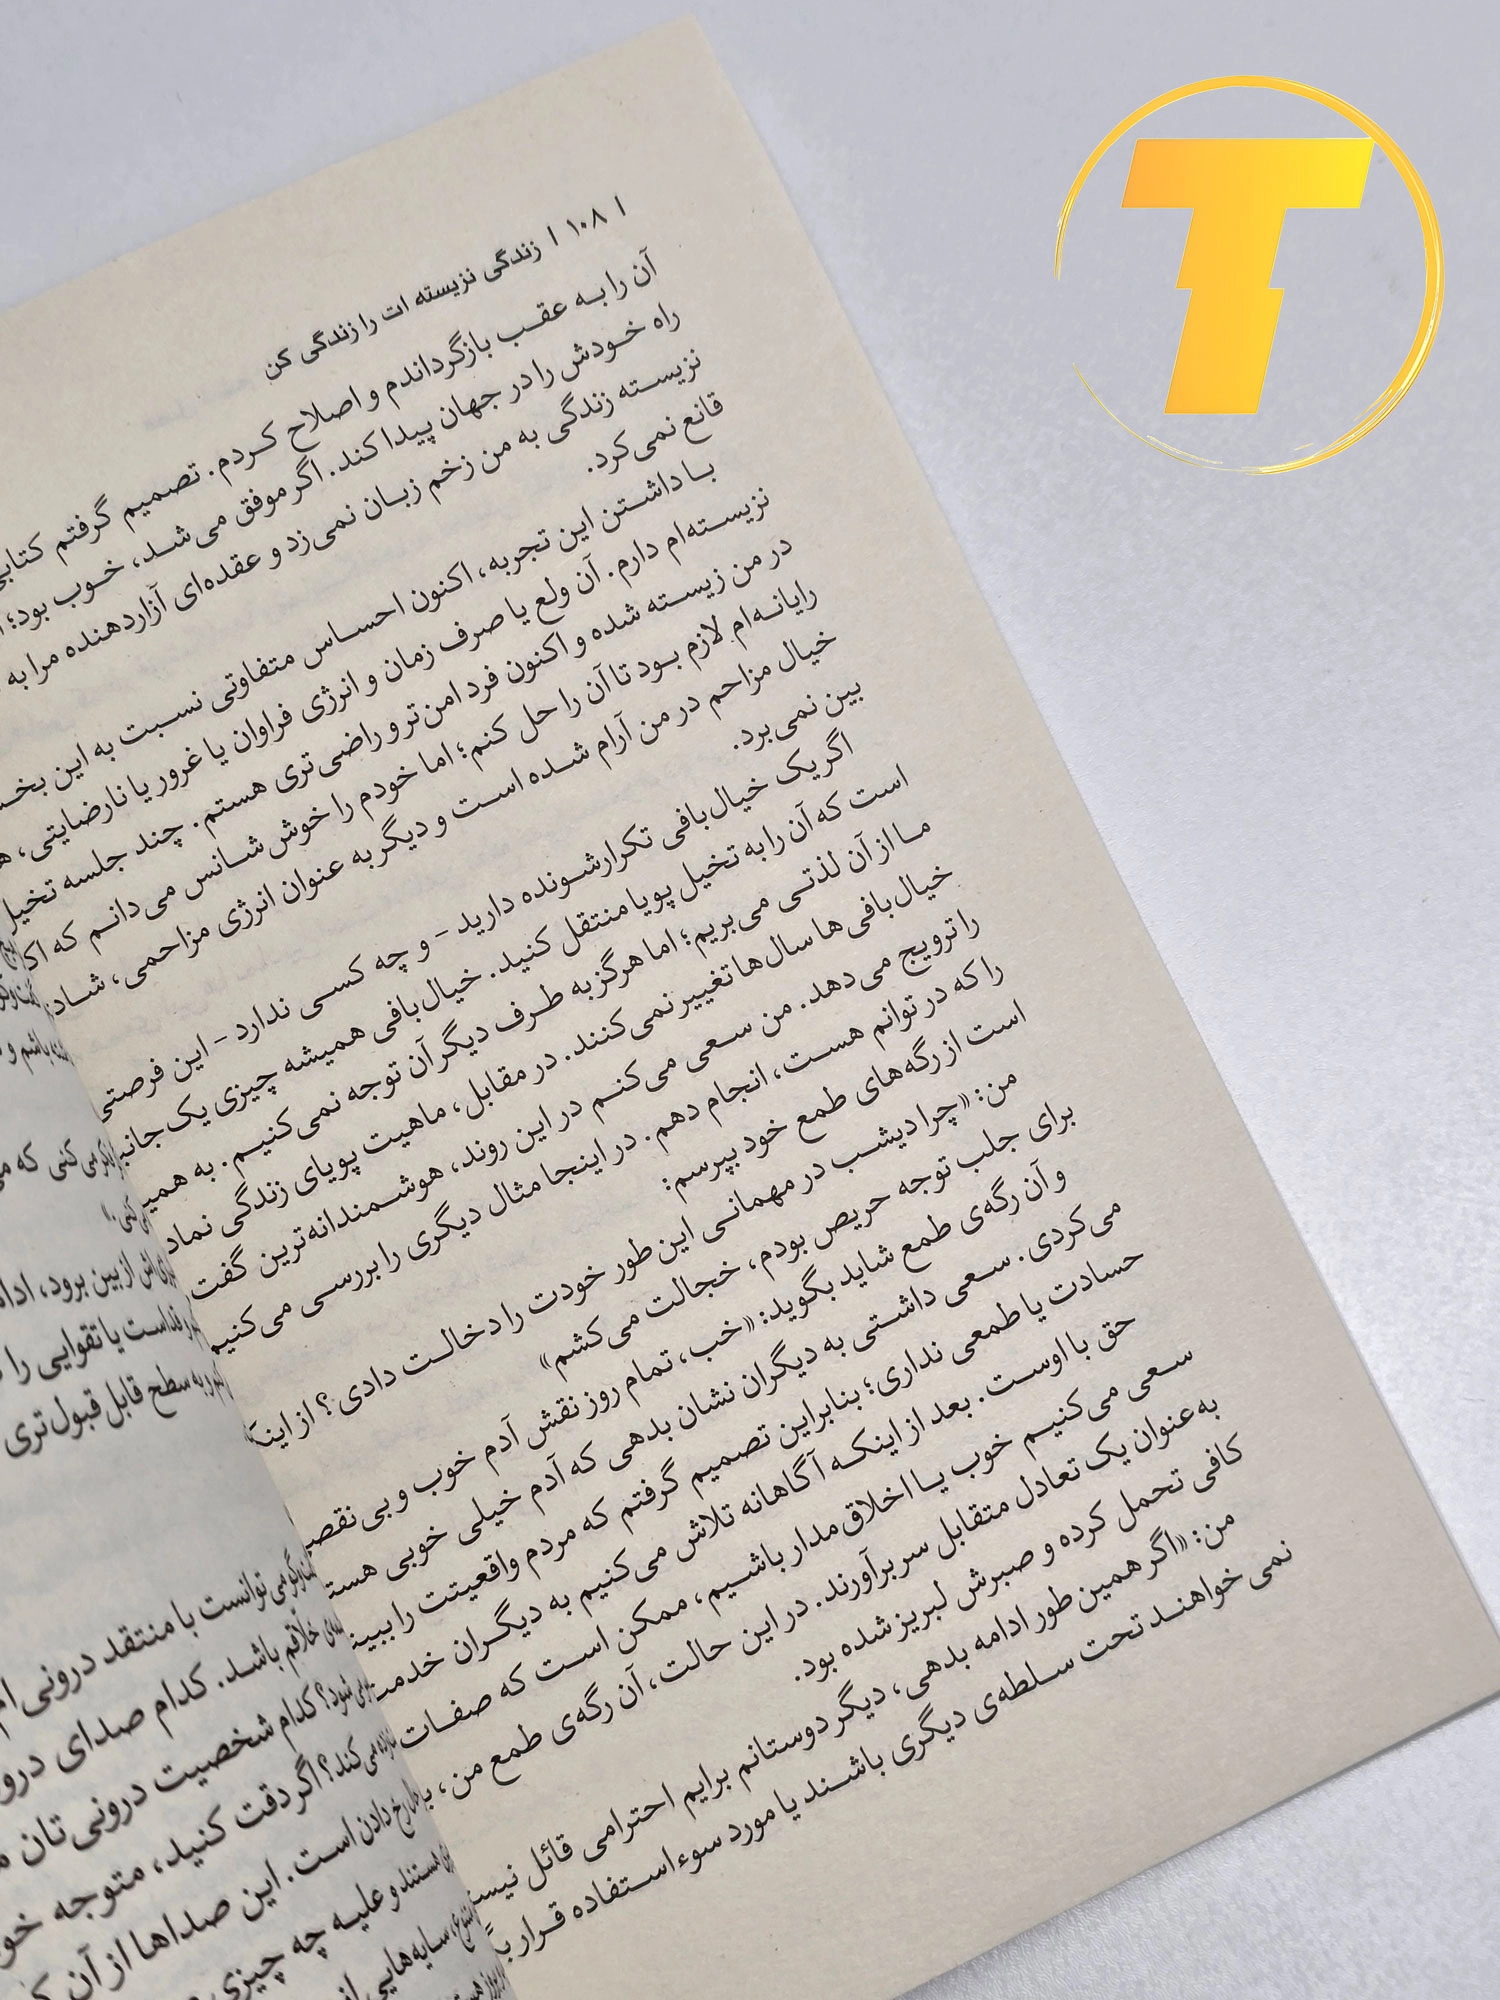 | ۱۰۸ | زندگی نزیسته ات را زندگی کن
آن را به عقب بازگرداندم و اصلاح کردم. تصمیم گرفتم
راه خودش را در جهان پیدا کند. اگر موفق می‌شد، خوب بود؛
نزیسته زندگی به من زخم زبان نمی‌زد و عقده‌ای آزاردهنده مرا به
قانع نمی‌کرد.
با داشتن این تجربه، اکنون احساس متفاوتی نسبت به این
نزیسته‌ام دارم. آن ولع یا صرف زمان و انرژی فراوان یا غرور یا نارضایتی،
در من زیسته شده و اکنون فرد امن‌تر و راضی‌تری هستم. چند جلسه تخیل
رایانه‌ام لازم بود تا آن را حل کنم؛ اما خودم را خوش شانس می‌دانم که
خیال مزاحم در من آرام شده است و دیگر به عنوان انرژی مزاحمی،
بین نمی‌برد.
اگر یک خیال‌بافی تکرارشونده دارید - و چه کسی ندارد - این فرصتی
است که آن را به تخیل پویا منتقل کنید. خیال‌بافی همیشه چیزی یک
ما از آن لذتی می‌بریم؛ اما هرگز به طرف دیگر آن توجه نمی‌کنیم. به
خیال‌بافی‌ها سال‌ها تغییر نمی‌کنند. در مقابل، ماهیت پویای زندگی
را ترویج می‌دهد. من سعی می‌کنم در این روند، هوشمندانه‌ترین
را که در توانم هست، انجام دهم. در اینجا مثال دیگری را بررسی
است از رگه‌های طمع خود بپرسم:
من: «چرا دیشب در مهمانی این طور خودت را دخالت دادی؟ از
برای جلب توجه حریص بودم، خجالت می‌کشم»
و آن رگه‌ی طمع شاید بگوید: «خب، تمام روز نقش آدم خوب و
می‌کردی. سعی داشتی به دیگران نشان بدهی که آدم خیلی خوبی
حسادت یا طمعی نداری؛ بنابراین تصمیم گرفتم که مردم واقعیتت را
حق با اوست. بعد از اینکه آگاهانه تلاش می‌کنیم به دیگران
سعی می‌کنیم خوب یا اخلاق‌مدار باشیم، ممکن است که صفات
به عنوان یک تعادل متقابل سر برآورند. در این حالت، آن رگه‌ی طمع من،
کافی تحمل کرده و صبرش لبریز شده بود.
من: «اگر همین طور ادامه بدهی، دیگر دوستانم برایم احترامی قائل
نمی‌خواهند تحت سلطه‌ی دیگری باشند یا مورد سوءاستفاده قرار
کنی که
از بین برود،
یا تقوایی را
به سطح قابل قبول‌تری
می‌توانست با منتقد درونی
خلاقم باشد. کدام صدای
شود؟ کدام شخصیت درونی‌تان
می‌کند؟ اگر دقت کنید، متوجه
رخ دادن است. این صداها از آن
هستند و علیه چه چیزی
سایه‌هایی
T